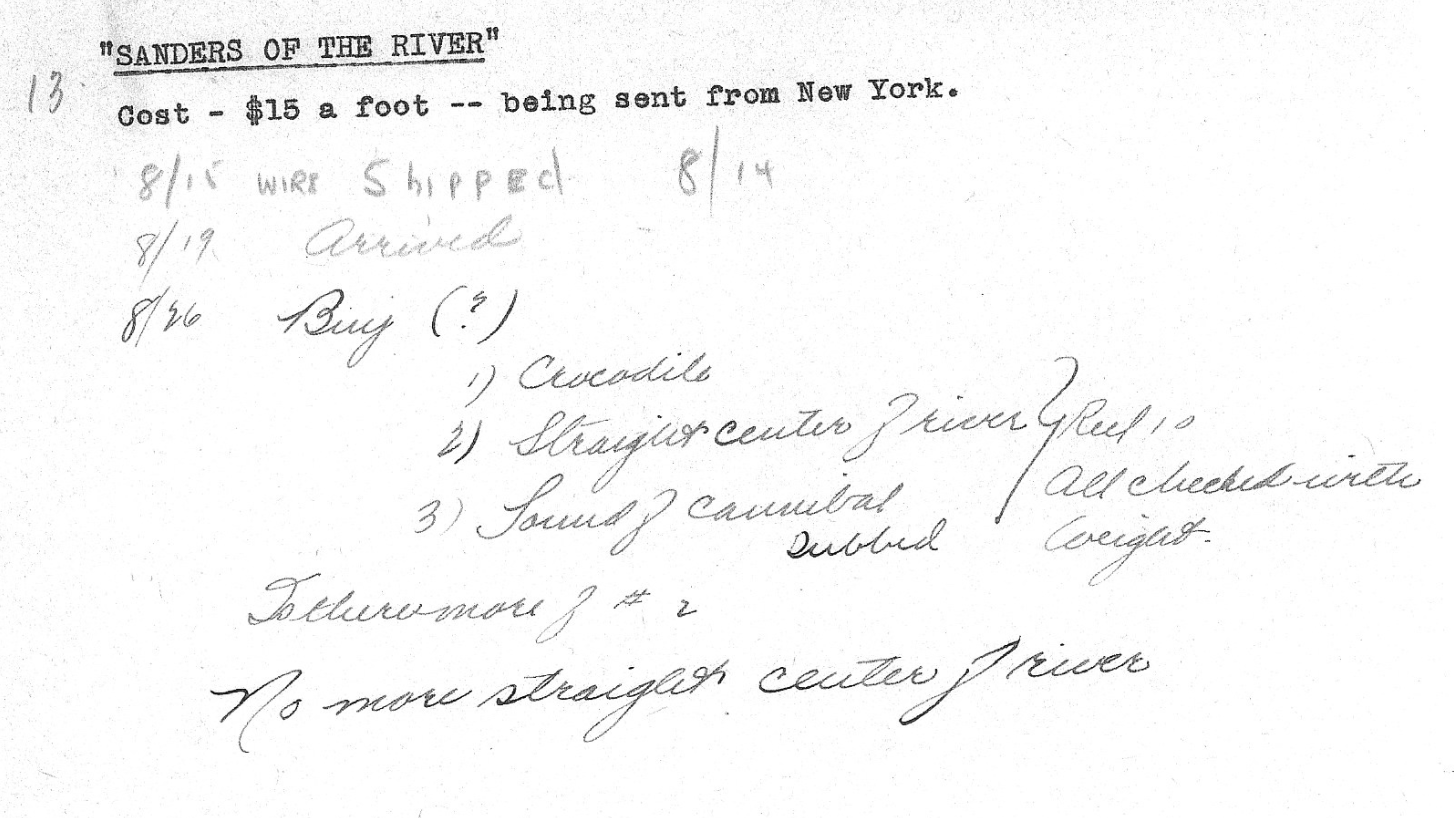 "SANDERS OF THE RIVER"
13
Cost - $15 a foot -- being sent from New York.
8/15 WIRE Shipped 8/14
8/19 Arrived
8/26 (?)
1) Crocodile
2) Straight center of river } Reel 10
3) Sound of cannibal All checked with
Dubbed
Is there more of # 2
No more straight center of river